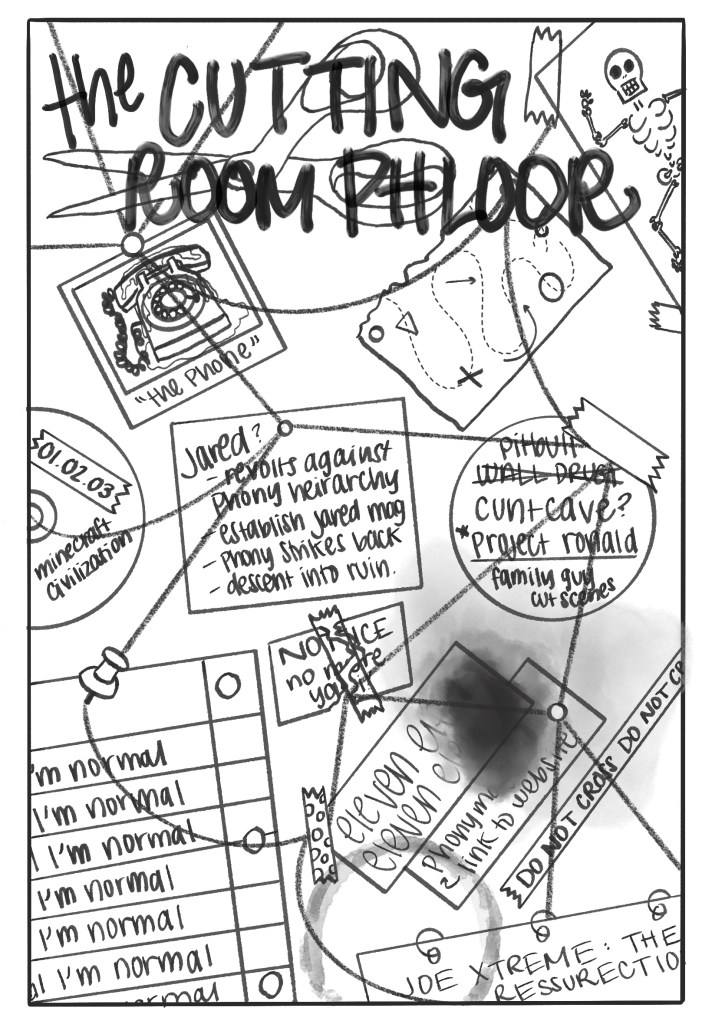 the CUTTING
ROOM PHLOOR
"the Phone"
01.02.03
minecraft
civilization
Jared?
- revolts against
phony heirarchy
- establish jared mag
- phony strikes back
- descent into ruin.
pitbull
WALL DRUG
cuntcave?
* Project ronald
family guy
cutscenes
NOTICE
no more
I'm normal
I'm normal
I'm normal
I'm normal
I'm normal
I'm normal
normal
eleven
eleven
link to website
DO NOT CROSS DO NOT CR
JOE XTREME: THE
RESSURECTIO